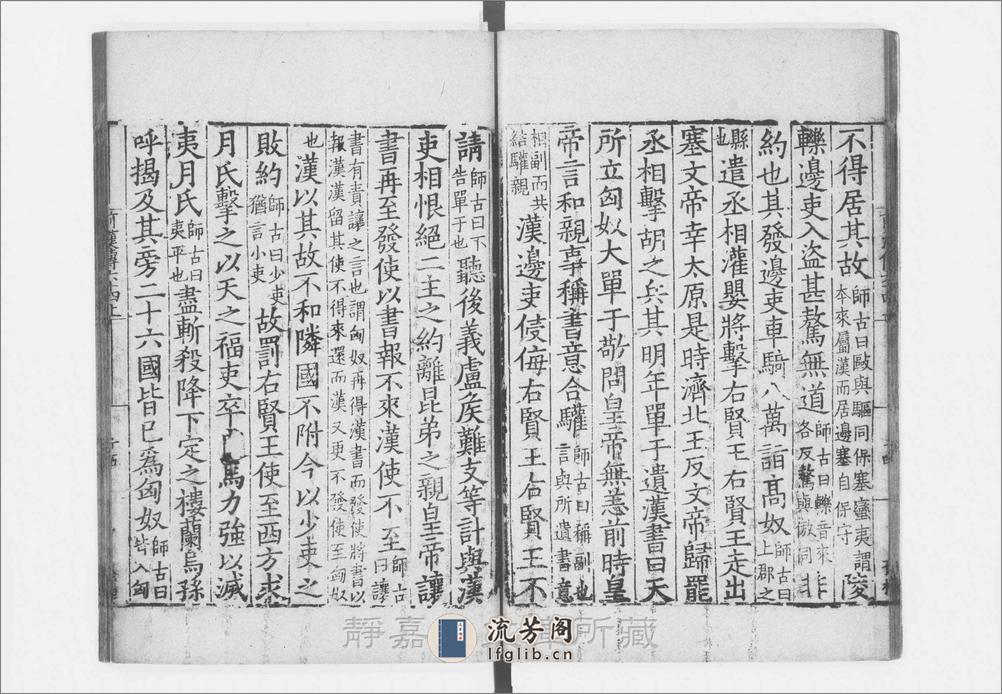 不得居其故師古曰敺與驅同保塞蠻夷謂本來屬漢而居邊塞自保守陵
轢邊吏入盜甚驁無道師古曰轢音來各反驁與傲同非
約也其發邊吏車騎八萬詣高奴師古曰上郡之
縣也遣丞相灌嬰將擊右賢王右賢王走出
塞文帝幸太原是時濟北王反文帝歸罷
丞相擊胡之兵其明年單于遺漢書曰天
所立匈奴大單于敬問皇帝無恙前時皇
帝言和親事稱書意合驩師古曰稱副也言與所遺書意
相副而共結驩親漢邊吏侵侮右賢王右賢王不
請師古曰下告單于也聽後義盧侯難支等計與漢
吏相恨絕二主之約離昆弟之親皇帝讓
書再至發使以書報不來漢使不至師古曰讓
書有責讓之言也謂匈奴再得漢書而發使將書以報漢漢留其使不得來還而漢又更不發使至匈奴
也漢以其故不和隣國不附今以少吏之
敗約師古曰少吏猶言小吏故罰右賢王使至西方求
月氏擊之以天之福吏卒馬力強以滅
夷月氏師古曰夷平也盡斬殺降下定之樓蘭烏孫
呼揭及其旁二十六國皆已爲匈奴師古曰皆入匈
靜嘉所藏
流芳阁
lfglib.cn